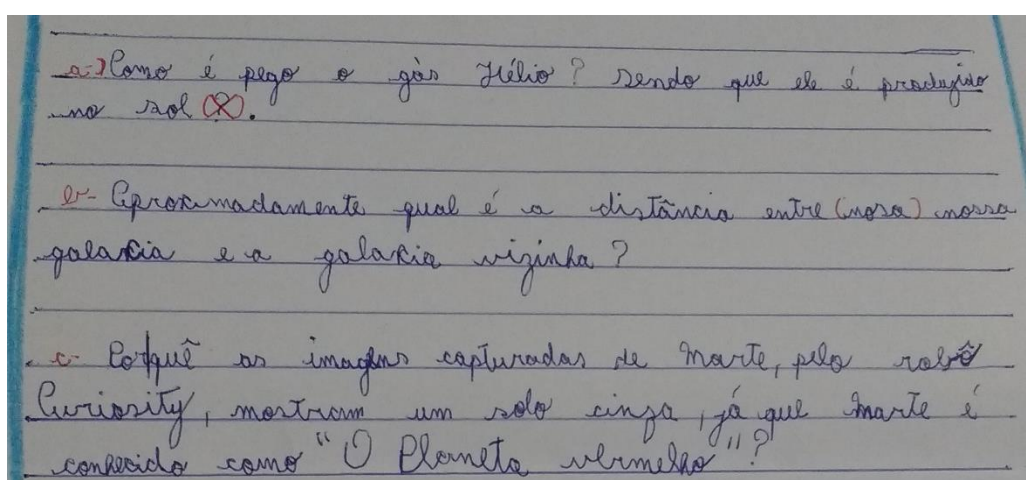 a-) Como é pego o gás Hélio? Sendo que ele é produzido
no sol (?).
b- Aproximadamente qual é a distância entre (nosa) nossa
galaxia e a galaxia vizinha?
c- Porquê as imagens capturadas de Marte, pelo robô
Curiosity, mostram um solo cinza, já que Marte é
conhecido como "O Planeta vermelho"?